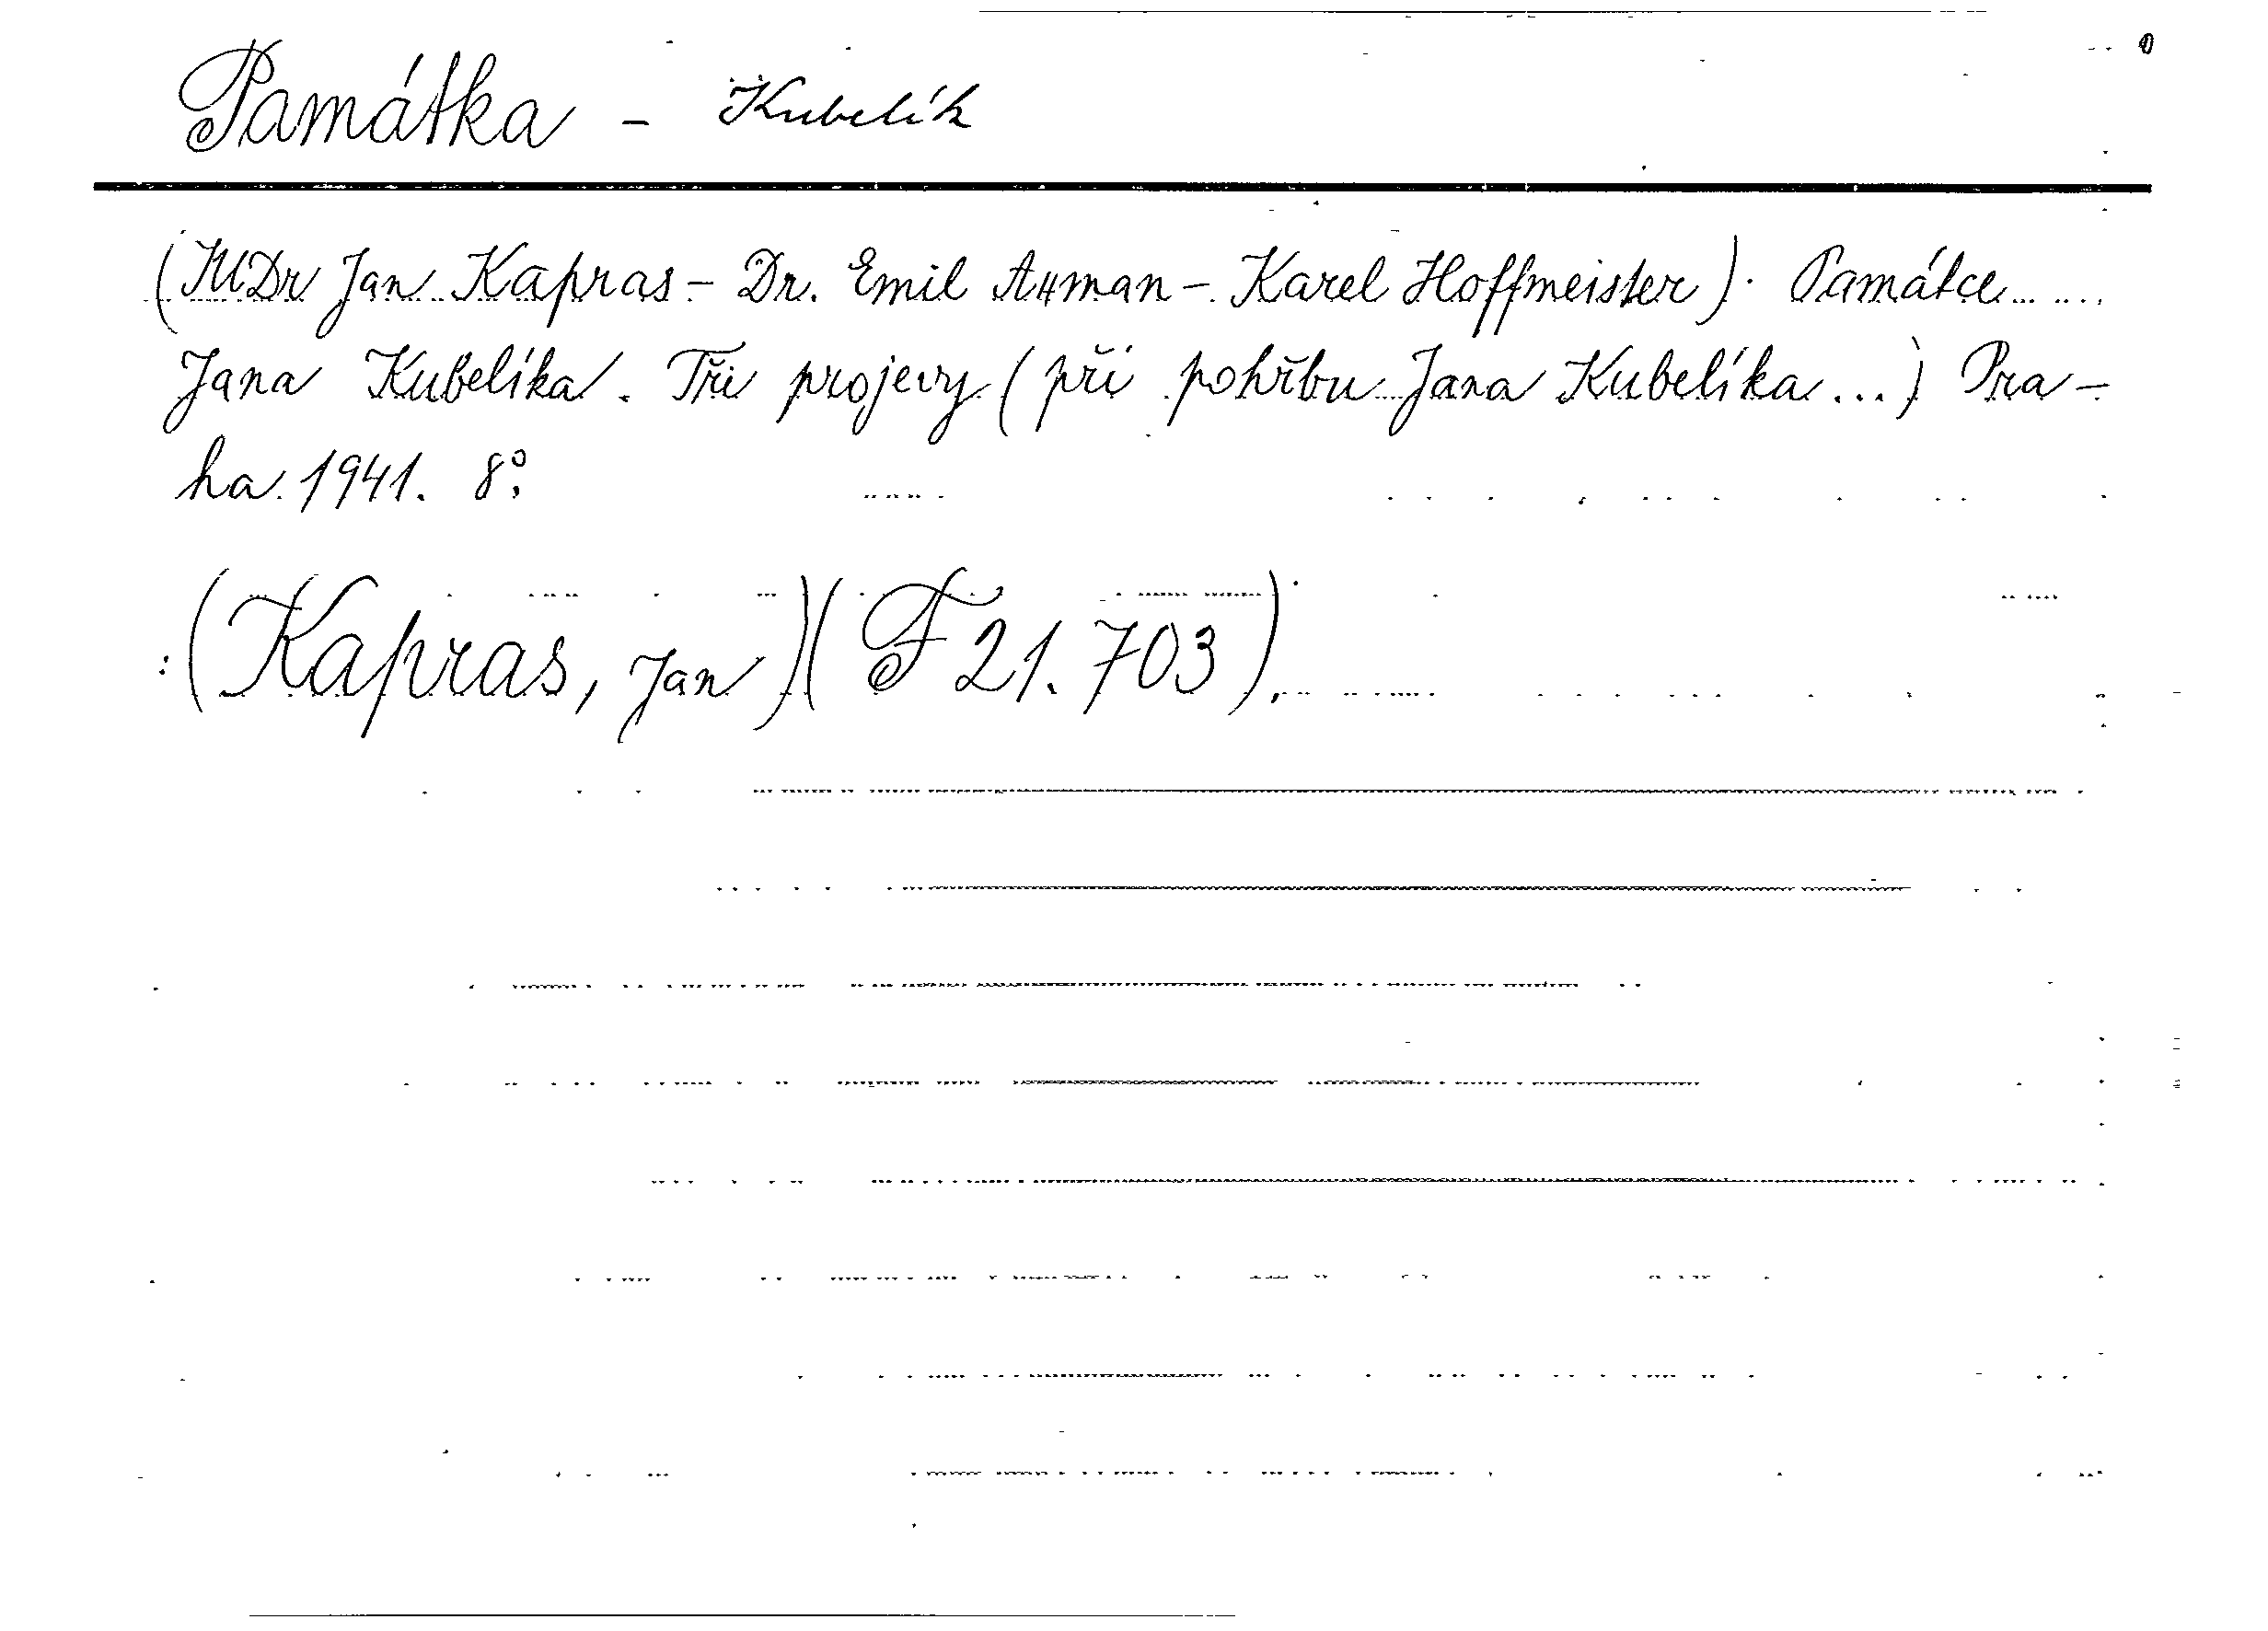 Památka - Kubelík
(JUDr Jan Kapras - Dr. Emil Axman - Karel Hoffmeister). Památce
Jana Kubelíka. Tři projevy (při pohřbu Jana Kubelíka...) Pra-
ha 1941. 8°.
(Kapras, Jan)(F 21.703).